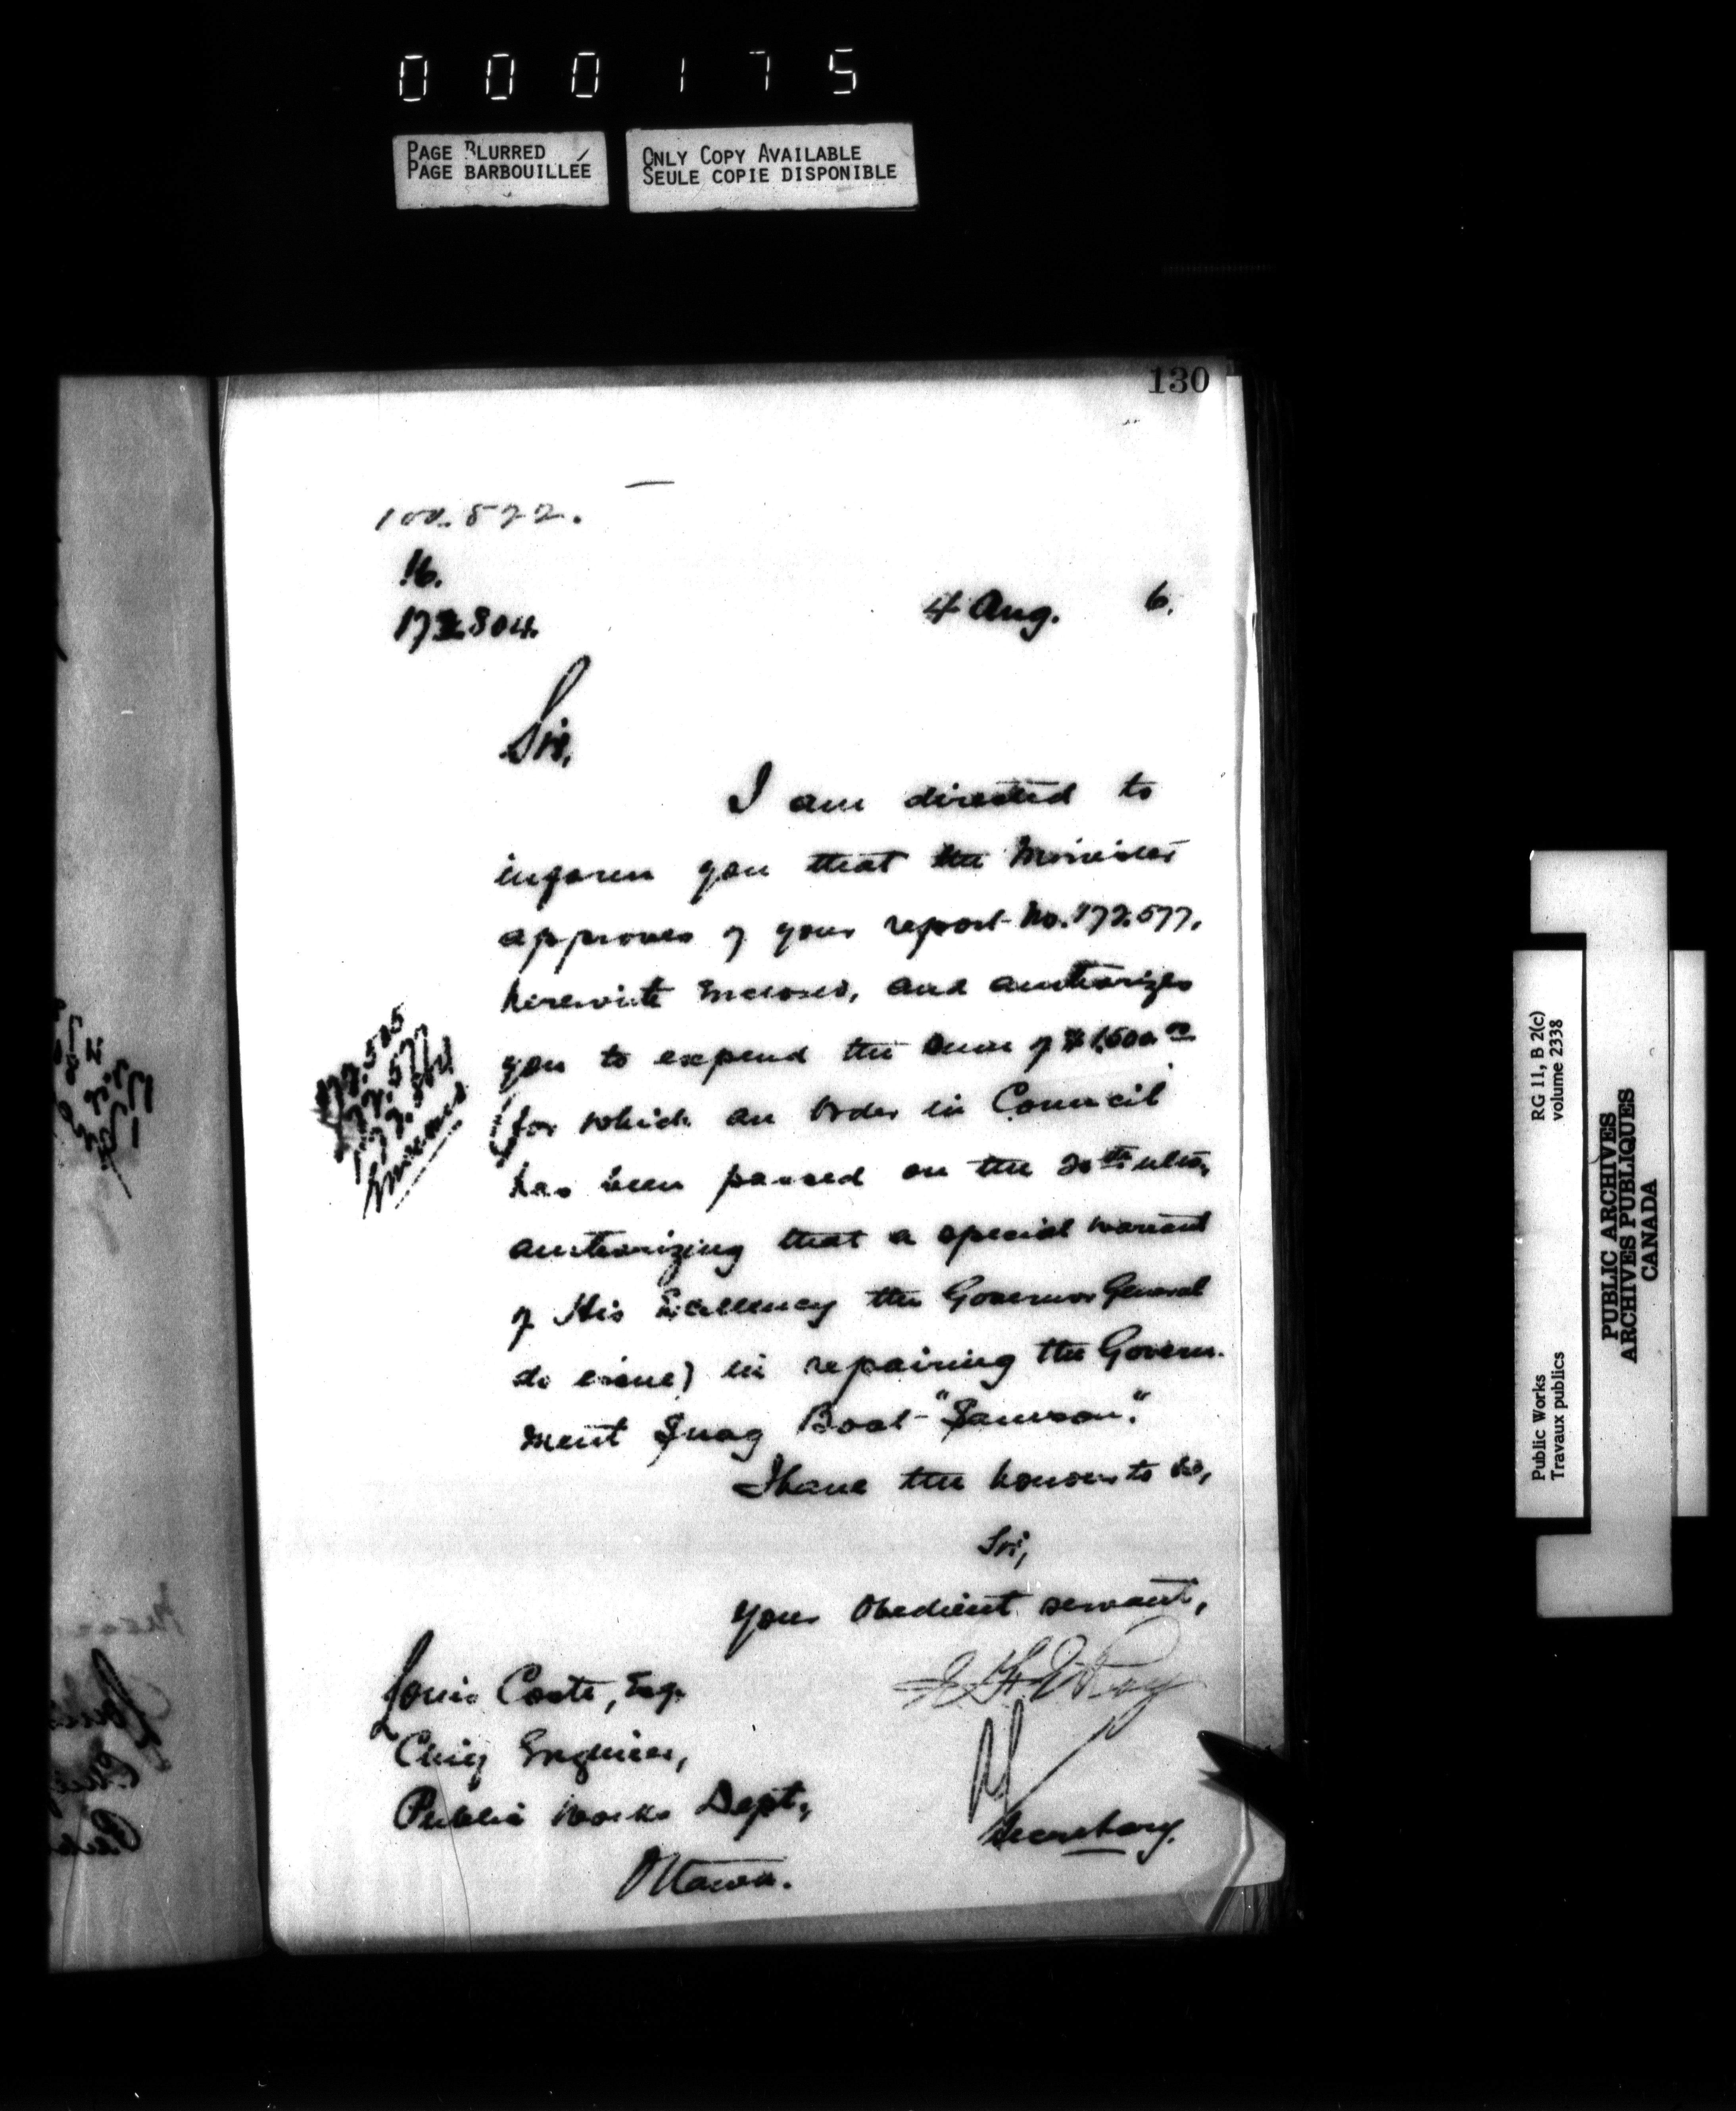 000175
PAGE BLURRED
PAGE BARBOUILLÉE
ONLY COPY AVAILABLE
SEULE COPIE DISPONIBLE
130
16.
4 Aug. 6.
Sir,
I am directed to
inform you that the Minister
approves of your report No. 172.577,
herewith enclosed, and authorizes
you to expend the sum of $1,500.00
(for which an Order in Council
has been passed on the ulto,
authorizing that a special warrant
of His Excellency the Governor General
do issue) in repairing the Govern-
ment Snag Boat "Samson".
I have the honour to be,
Sir,
Your Obedient servant,
Louis Coste, Esq.
Chief Engineer,
Public Works Dept,
Ottawa.
Secretary.
172.577
RG 11, B 2(c)
volume 2338
Public Works
Travaux publics
PUBLIC ARCHIVES
ARCHIVES PUBLIQUES
CANADA